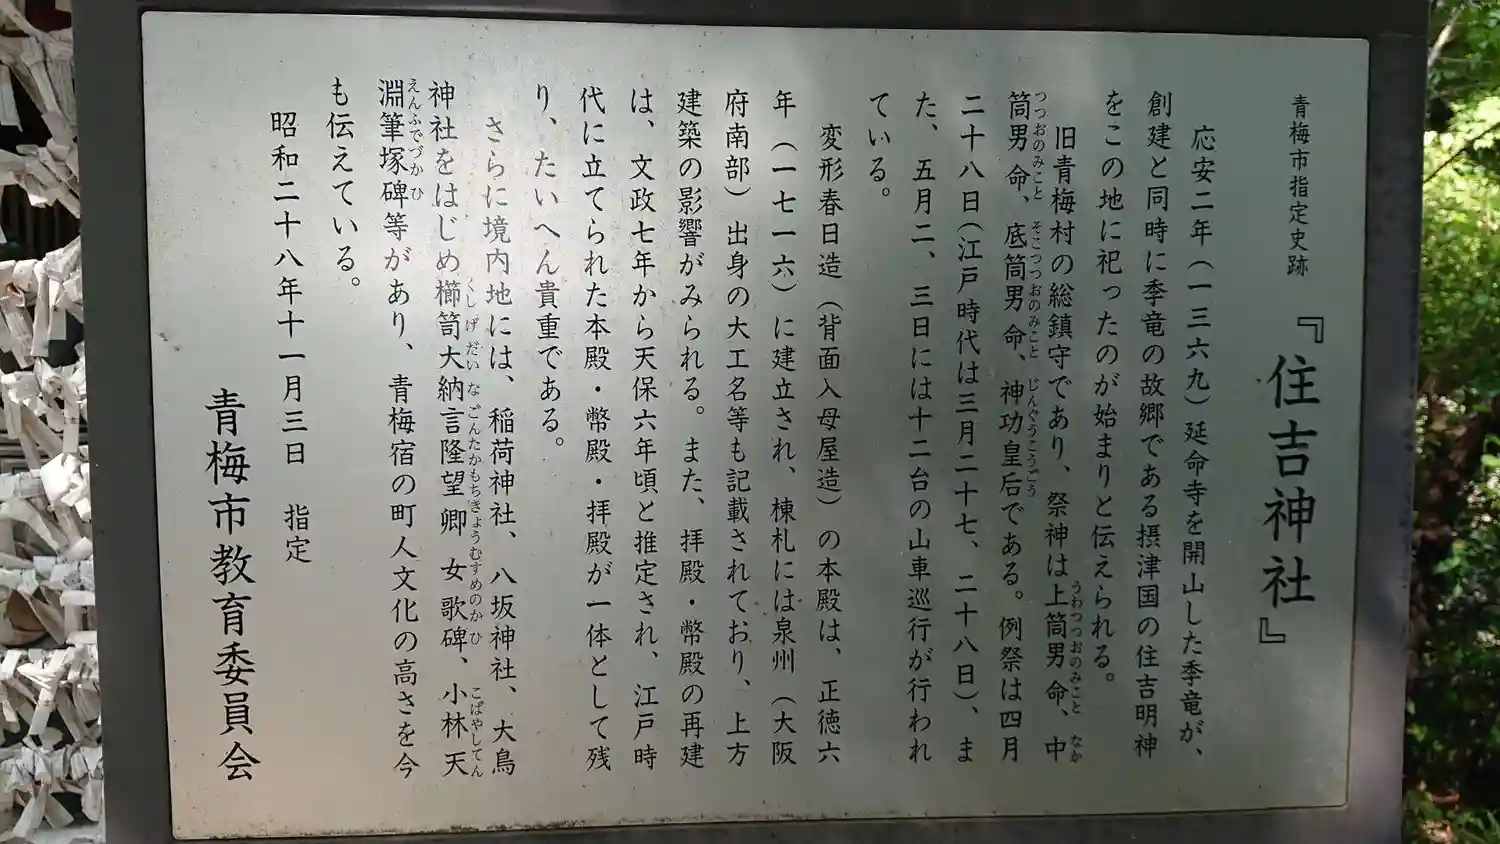 青梅市指定史跡 『住吉神社』
応安二年（一三六九）延命寺を開山した季竜が、
創建と同時に季竜の故郷である摂津国の住吉明神
をこの地に祀ったのが始まりと伝えられる。
旧青梅村の総鎮守であり、祭神は上筒男命、中
筒男命、底筒男命、神功皇后である。例祭は四月
二十八日（江戸時代は三月二十七、二十八日）、ま
た、五月二、三日には十二台の山車巡行が行われ
ている。
変形春日造（背面入母屋造）の本殿は、正徳六
年（一七一六）に建立され、棟札には泉州（大阪
府南部）出身の大工名等も記載されており、上方
建築の影響がみられる。また、拝殿・幣殿の再建
は、文政七年から天保六年頃と推定され、江戸時
代に立てられた本殿・幣殿・拝殿が一体として残
り、たいへん貴重である。
さらに境内地には、稲荷神社、八坂神社、大鳥
神社をはじめ櫛笥大納言隆望卿女歌碑、小林天
淵筆塚碑等があり、青梅宿の町人文化の高さを今
も伝えている。
昭和二十八年十一月三日 指定
青梅市教育委員会